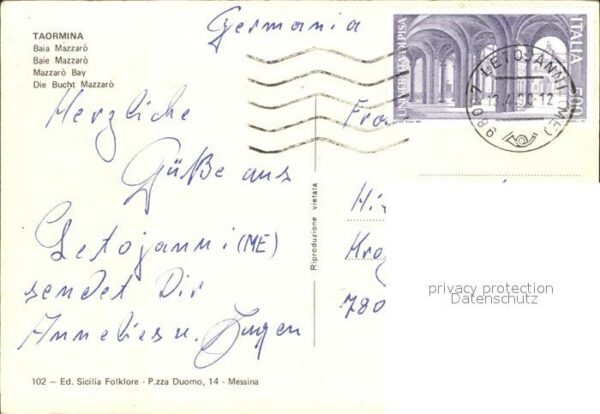 Germania
TAORMINA
Baia Mazzarò
Baie Mazzarò
Mazzarò Bay
Die Bucht Mazzarò
Herzliche
Grüße aus
Letojanni (ME)
sendet Dir
Annelies u. Jürgen
102 — Ed. Sicilia Folklore - P.zza Duomo, 14 - Messina
Riproduzione vietata
UNIVERSITÀ DI PISA
ITALIA
500
98037 LETOJANNI (ME)
90-12
Fra
Hi
780
privacy protection
Datenschutz